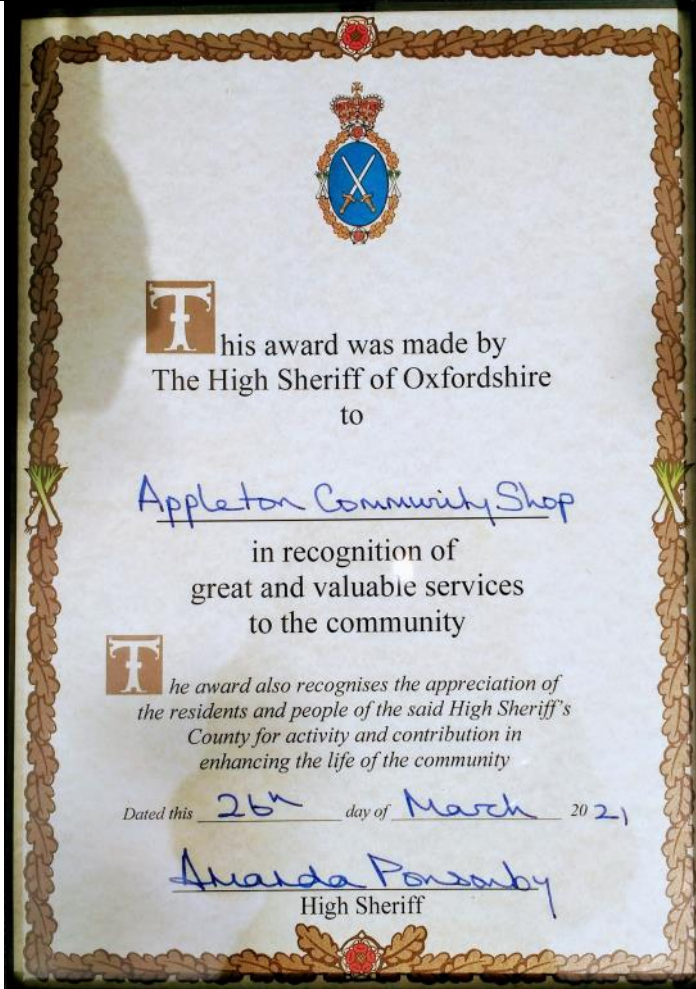 This award was made by
The High Sheriff of Oxfordshire
to
Appleton Community Shop
in recognition of
great and valuable services
to the community
The award also recognises the appreciation of
the residents and people of the said High Sheriff's
County for activity and contribution in
enhancing the life of the community
Dated this 26th day of March 2021
Amanda Ponsonby
High Sheriff